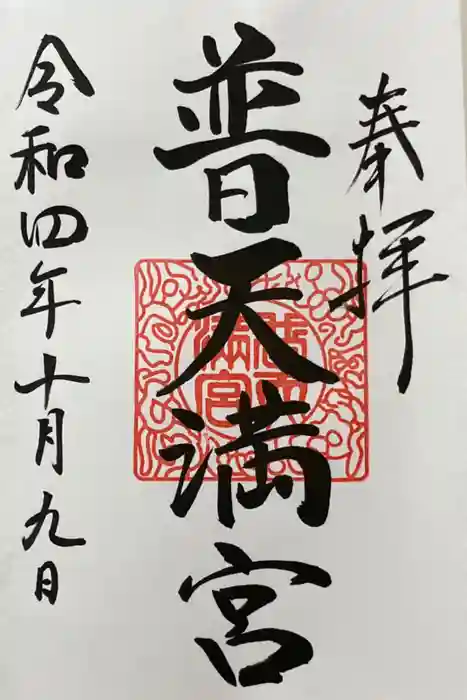 奉拝
普天満宮
令和四年十月九日